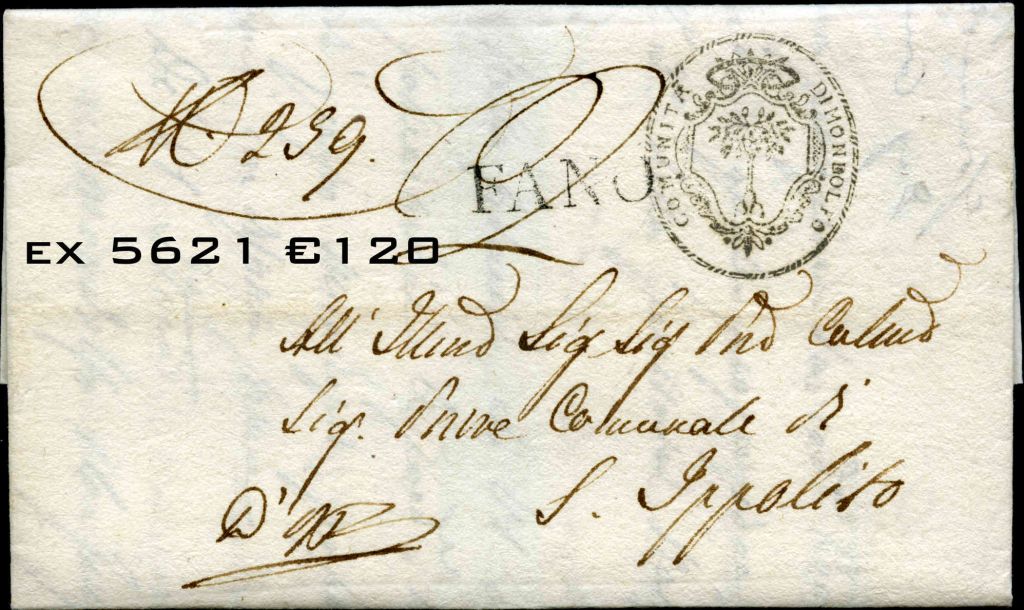 N. 239.
2
FANO
COMUNITÀ DI MONDOLFO
EX 5621 €120
All' Illmo Sig Sig Pnd Colmo
Sig. Priore Comunale di
S. Ippolito
D'